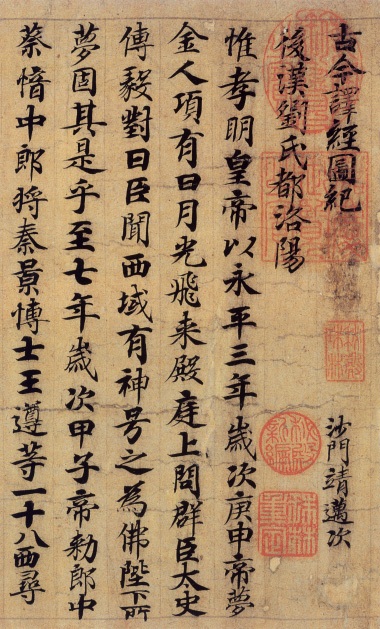 古今譯經圖紀
沙門靖邁次
後漢劉氏都洛陽
惟孝明皇帝以永平三年歲次庚申帝夢
金人項有日月光飛来殿庭上問群臣太史
傳毅對曰臣聞西域有神号之為佛陛下所
夢固其是乎至七年歲次甲子帝勑郎中
蔡愔中郎將秦景博士王遵等一十八西尋